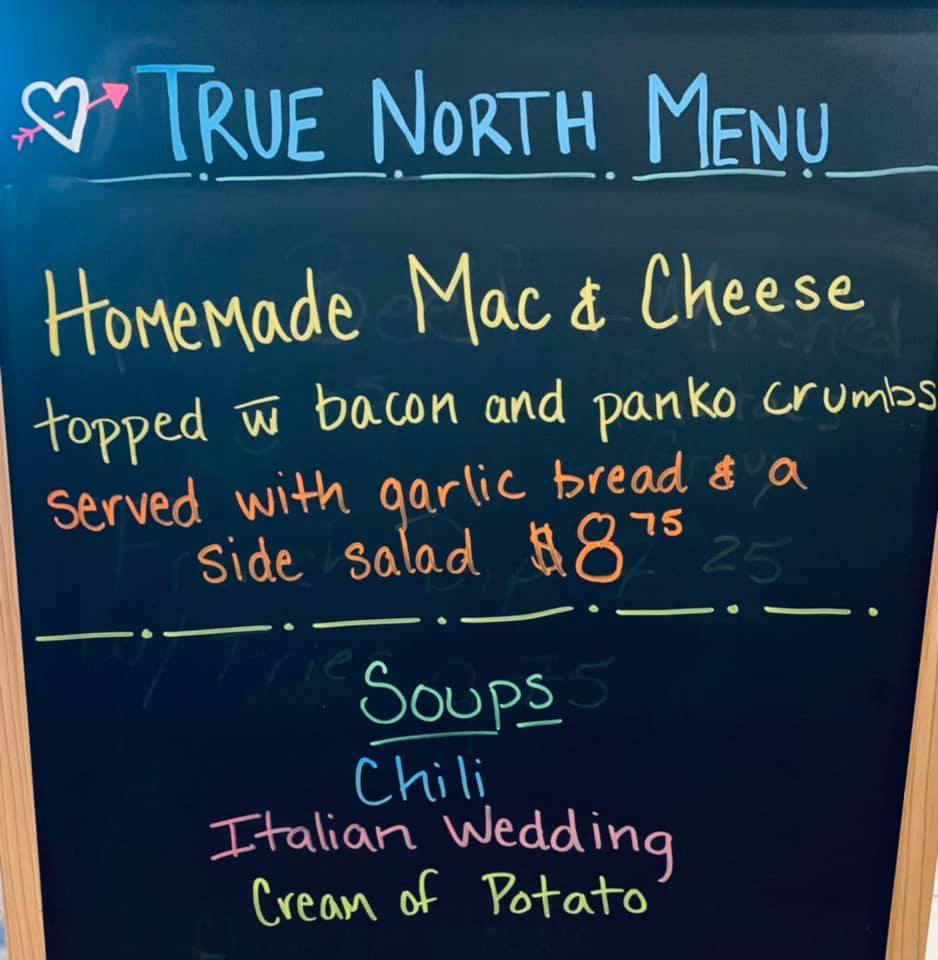 TRUE NORTH MENU
Homemade Mac & Cheese
topped w̅ bacon and panko crumbs
served with garlic bread & a
side salad $8.75
Soups
Chili
Italian Wedding
Cream of Potato